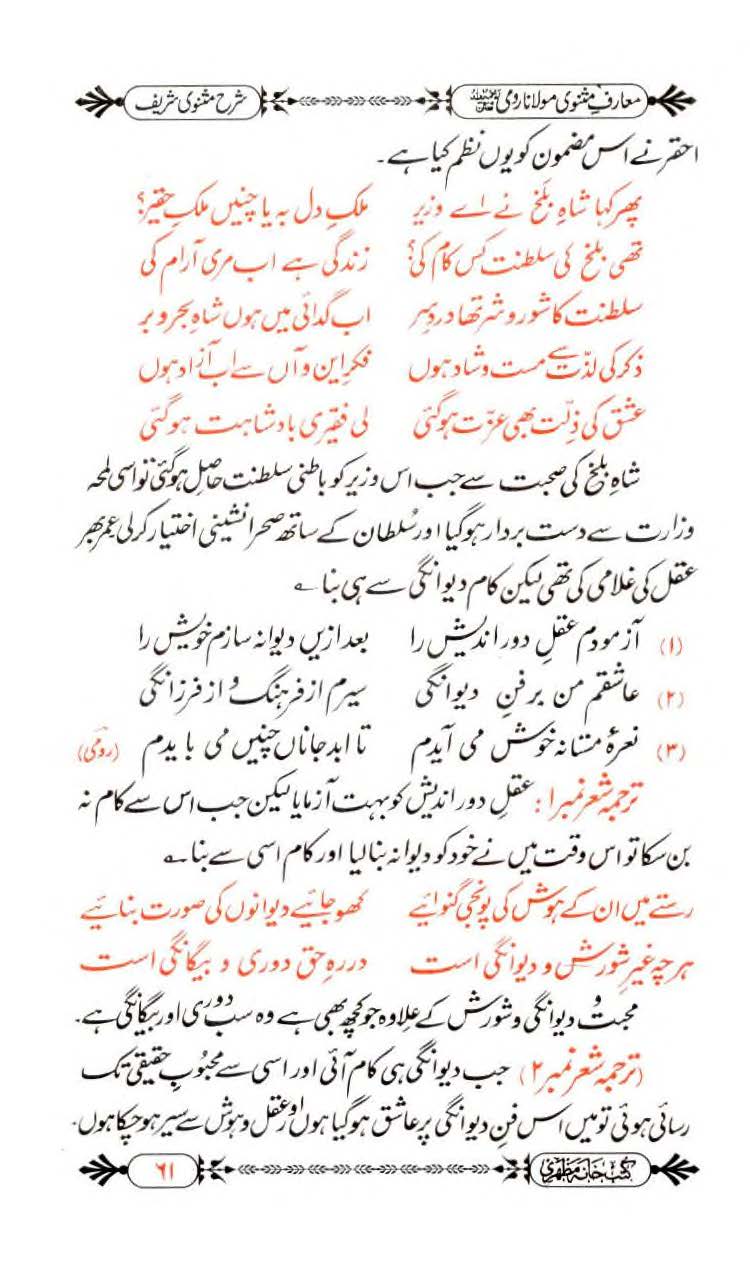 معارفِ مثنوی مولانا رومی رحمۃ اللہ علیہ شرح مثنوی شریف
احقر نے اس مضمون کو یوں نظم کیا ہے۔
پھر کہا شاہِ بلخ نے اے وزیر ملکِ دل بہ یا چنیں ملکِ حقیر؟
تھی بلخ کی سلطنت کس کام کی؟ زندگی ہے اب مری آرام کی
سلطنت کا شور و شر تھا دردِ سر اب گدائی میں ہوں شاہِ بحر و بر
ذکر کی لذّت سے مست و شاد ہوں فکرِ این و آں سے اب آزاد ہوں
عشق کی ذِلّت بھی عزّت ہوگئی لی فقیری بادشاہت ہوگئی
شاہِ بلخ کی صحبت سے جب اس وزیر کو باطنی سلطنت حاصل ہوگئی تو اسی لمحہ
وزارت سے دست بردار ہوگیا اور سُلطان کے ساتھ صحرا نشینی اختیار کرلی عمر بھر
عقل کی غلامی کی تھی لیکن کام دیوانگی سے ہی بنا ؎
(۱) آزمودم عقلِ دور اندیش را بعد ازیں دیوانہ سازم خویش را
(۲) عاشقم من بر فنِ دیوانگی سیرم از فرہنگ و از فرزانگی
(۳) نعرۂ مستانہ خوش می آیدم تا ابد جاناں چنیں می بایدم (رومیؒ)
ترجمہ شعر نمبر ۱: عقلِ دور اندیش کو بہت آزمایا لیکن جب اس سے کام نہ
بن سکا تو اس وقت میں نے خود کو دیوانہ بنالیا اور کام اسی سے بنا ؎
رستے میں ان کے ہوش کی پونجی گنوائیے کھو جائیے دیوانوں کی صورت بنائیے
ہر چہ غیرِ شورش و دیوانگی است در رہِ حق دوری و بیگانگی است
محبت و دیوانگی و شورش کے علاوہ جو کچھ بھی ہے وہ سب دوری اور بیگانگی ہے۔
(ترجمہ شعر نمبر ۲) جب دیوانگی ہی کام آئی اور اسی سے محبوبِ حقیقی تک
رسائی ہوئی تو میں اس فنِ دیوانگی پر عاشق ہوگیا ہوں اور عقل و ہوش سے سیر ہوچکا ہوں۔
کتب خانہ مظہری ۶۱